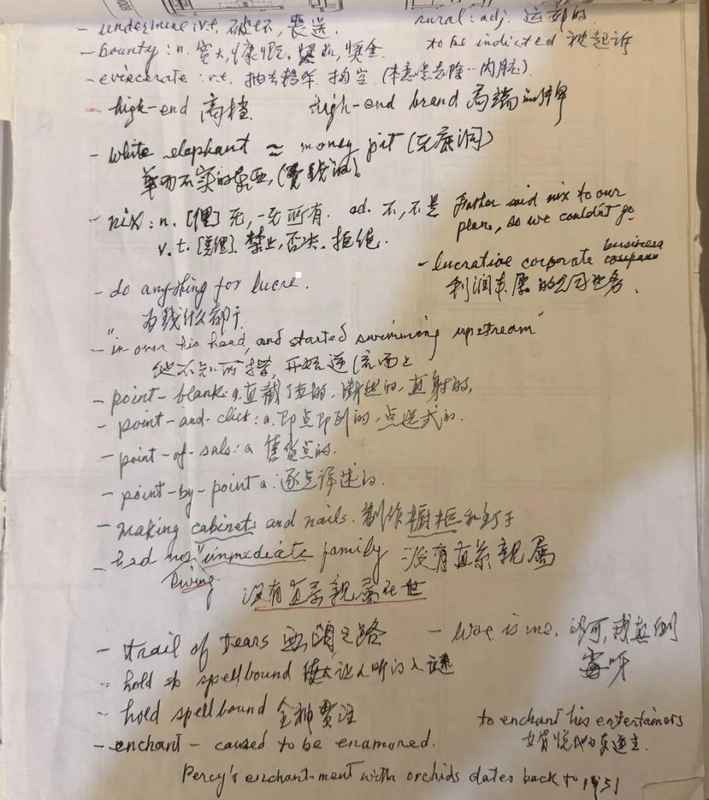 - undermine: v.t. 破坏, 丧送
rural: adj. 边郊的
- bounty: n. 宽大, 慷慨, 奖励, 奖金
to be indicted 被起诉
- eviscerate: v.t. 抽去精华 掏空 (本意是去除…内脏)
- high-end 高档. high-end brand 高端的牌
- white elephant ≈ money pit (无底洞)
华而不实的东西, (费钱的)
- nix: n. [俚] 无, 一无所有. ad. 不, 不是
Father said nix to our
plans, so we couldn't go
v.t. [美俚]. 禁止, 否决. 拒绝.
- lucrative corporate business company
利润丰厚的公司业务.
- do anything for lucre.
为钱什么都干
- "in over his head, and started swimming upstream"
他不知所措, 开始逆流而上
- point-blank: a. 直截了当的, 断然的, 直射的,
- point-and-click: a. 即点即到的, 点选式的.
- point-of-sale: a 售货点的.
- point-by-point a. 逐点详述的.
- making cabinets and nails. 制作橱柜和钉子
- had no "immediate family 没有直系亲属
living
没有直系亲属在世
- trail of tears 血泪之路
- Woe is me. 我真倒
霉呀
- hold spellbound 让人听的入谜
- hold spellbound 全神贯注
to enchant his entertainers
- enchant - caused to be enamored.
Percy's enchantment with orchids dates back to 1951